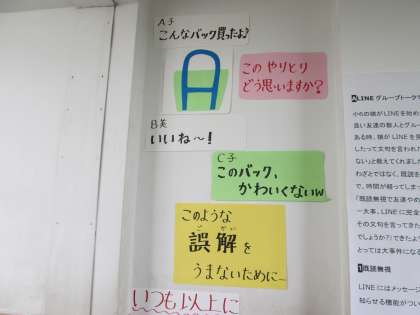 A子
こんなバック買ったよ♪
このやりとり
どう思いますか?
B美
いいね〜!
C子
このバック、
かわいくないw
このような
ごかい
誤解を
うまないために—
いつも以上に
LINEグループトーク
小6の娘がLINEを始め
良い友達の数人とグルー
ある時、娘がLINEを受
したって文句を言われた
ない」と教えてくれました
わざとではなく、既読を
で、時間が経ってしまっ
「既読無視で友達やめ
一大事。LINEに完全
その文句を言ってきた
でしょうか?」できたよう
とっては大事件になる
1既読無視
LINEにはメッセージ
知らせる機能がつい